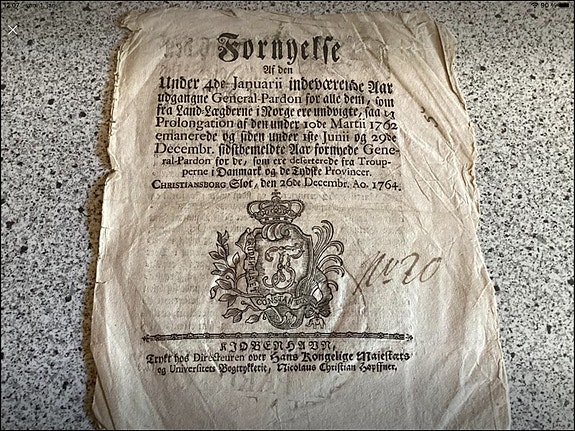 Fornyelse
Af den
Under 4de Januarii indeværende Aar
udgangne General-Pardon for alle dem, som
fra Land-Lægderne i Norge ere undvigte, saa og
Prolongation af den under 10de Martii 1762
emanerede og siden under 1ste Junii og 29de
Decembr. sidstbemeldte Aar fornyede Gene-
ral-Pardon for de, som ere deserterede fra Troup-
perne i Danmark og de Tydske Provincer.
CHRISTIANSBORG Slot, den 26de Decembr. Ao. 1764.
No 20
KIØBENHAVN,
Trykt hos Directeuren over Hans Kongelige Majestæts
og Universitets Bogtrykkerie, Nicolaus Christian Höpffner.